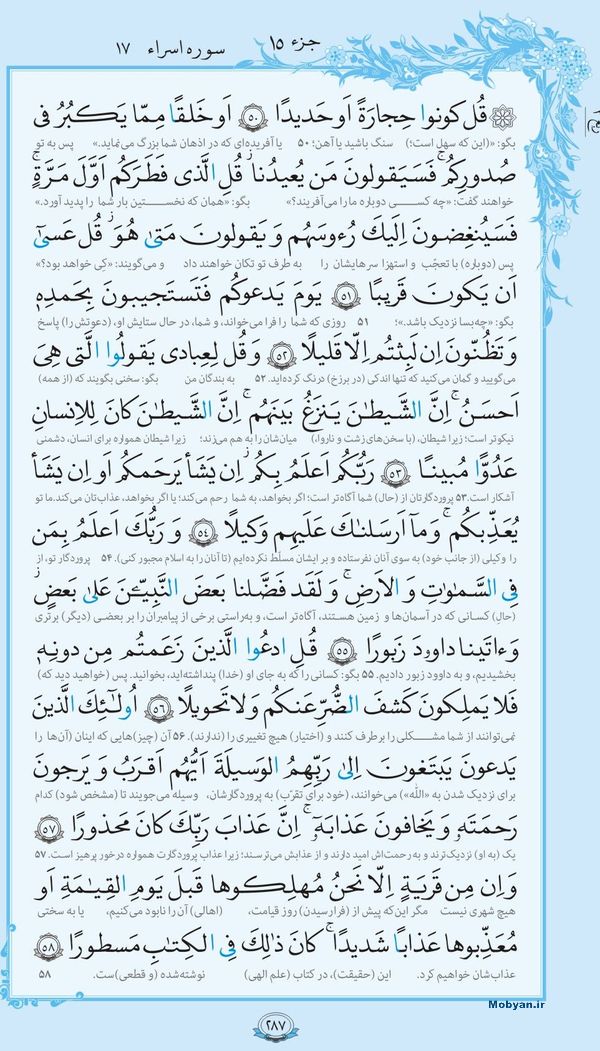 جزء ۱۵
سوره اسراء ۱۷
قُل كونوا حِجارَةً اَو حَديدًا ۵۰ اَو خَلقًا مِمّا يَكبُرُ فى
بگو: «(این که سهل است؛) سنگ باشید یا آهن؛ ۵۰ یا آفریده‌ای که در اذهان شما بزرگ می‌نماید.» پس به تو
صُدورِكُم ۚ فَسَيَقولونَ مَن يُعيدُنا ۖ قُلِ الَّذى فَطَرَكُم اَوَّلَ مَرَّةٍ ۚ
خواهند گفت: «چه کسی دوباره ما را می‌آفریند؟» بگو: «همان که نخستین بار شما را پدید آورد.»
فَسَيُنغِضونَ اِلَيكَ رُءوسَهُم وَ يَقولونَ مَتىٰ هُوَ ۖ قُل عَسىٰٓ
پس (دوباره) با تعجّب و استهزا سرهایشان را به طرف تو تکان خواهند داد و می‌گویند: «کِی خواهد بود؟»
اَن يَكونَ قَريبًا ۵۱ يَومَ يَدعوكُم فَتَستَجيبونَ بِحَمدِهٖ
بگو: «چه‌بسا نزدیک باشد.»؛ ۵۱ روزی که شما را فرا می‌خواند، و شما، در حال ستایش او، (دعوتش را) پاسخ
وَ تَظُنّونَ اِن لَبِثتُم اِلّا قَليلًا ۵۲ وَ قُل لِعِبادى يَقولُوا الَّتى هِىَ
می‌گویید و گمان می‌کنید که تنها اندکی (در برزخ) درنگ کرده‌اید. ۵۲ به بندگان من بگو: سخنی بگویند که (از همه)
اَحسَنُ ۚ اِنَّ الشَّيطٰنَ يَنزَغُ بَينَهُم ۚ اِنَّ الشَّيطٰنَ كانَ لِلاِنسانِ
نیکوتر است؛ زیرا شیطان، (با سخن‌های زشت و ناروا،) میان‌شان را به هم می‌زند؛ زیرا شیطان همواره برای انسان، دشمنی
عَدُوًّا مُبينًا ۵۳ رَبُّكُم اَعلَمُ بِكُم ۖ اِن يَشَأ يَرحَمكُم اَو اِن يَشَأ
آشکار است. ۵۳ پروردگارتان از (حال) شما آگاه‌تر است؛ اگر بخواهد، به شما رحم می‌کند؛ یا اگر بخواهد، عذاب‌تان می‌کند. ما تو
يُعَذِّبكُم ۚ وَ مآ اَرسَلنٰكَ عَلَيهِم وَكيلًا ۵۴ وَ رَبُّكَ اَعلَمُ بِمَن
را وکیلی (از جانب خود) به سوی آنان نفرستاده و بر ایشان مسلّط نکرده‌ایم (تا آنان را به اسلام مجبور کنی). ۵۴ پروردگار تو، از
فِى السَّمٰوٰتِ وَ الاَرضِ ۗ وَ لَقَد فَضَّلنا بَعضَ النَّبِيّٖنَ عَلىٰ بَعضٍ ۖ
(حال) کسانی که در آسمان‌ها و زمین هستند، آگاه‌تر است، و به‌راستی برخی از پیامبران را بر بعضی (دیگر) برتری
وَ ءاتَينا داوودَ زَبورًا ۵۵ قُلِ ادعُوا الَّذينَ زَعَمتُم مِن دونِهٖ
بخشیدیم، و به داوود زبور دادیم. ۵۵ بگو: کسانی را که به جای او (خدا) پنداشته‌اید، بخوانید. پس (خواهید دید که)
فَلا يَملِكونَ كَشفَ الضُّرِّ عَنكُم وَ لا تَحويلًا ۵۶ اُولٰٓئِكَ الَّذينَ
نمی‌توانند از شما مشکلی را برطرف کنند و (اختیار) هیچ تغییری را (ندارند). ۵۶ آن (چیز)هایی که اینان (آن‌ها را
يَدعونَ يَبتَغونَ اِلىٰ رَبِّهِمُ الوَسيلَةَ اَيُّهُم اَقرَبُ وَ يَرجونَ
برای نزدیک شدن به «الله») می‌خوانند، (خود برای تقرّب) به پروردگارشان، وسیله می‌جویند تا (مشخص شود) کدام
رَحمَتَهٗ وَ يَخافونَ عَذابَهٗٓ ۚ اِنَّ عَذابَ رَبِّكَ كانَ مَحذورًا ۵۷
یک (به او) نزدیک‌ترند و به رحمتش امید دارند و از عذابش می‌ترسند؛ زیرا عذاب پروردگارت همواره درخور پرهیز است. ۵۷
وَ اِن مِن قَريَةٍ اِلّا نَحنُ مُهلِكوها قَبلَ يَومِ القِيٰمَةِ اَو
هیچ شهری نیست مگر این‌که پیش از (فرارسیدن) روز قیامت، (اهالی) آن را نابود می‌کنیم، یا به سختی
مُعَذِّبوها عَذابًا شَديدًا ۚ كانَ ذٰلِكَ فِى الكِتٰبِ مَسطورًا ۵۸
عذاب‌شان خواهیم کرد. این (حقیقت)، در کتاب (علم الهی) نوشته‌شده (و قطعی)ست. ۵۸
۲۸۷
Mobyan.ir